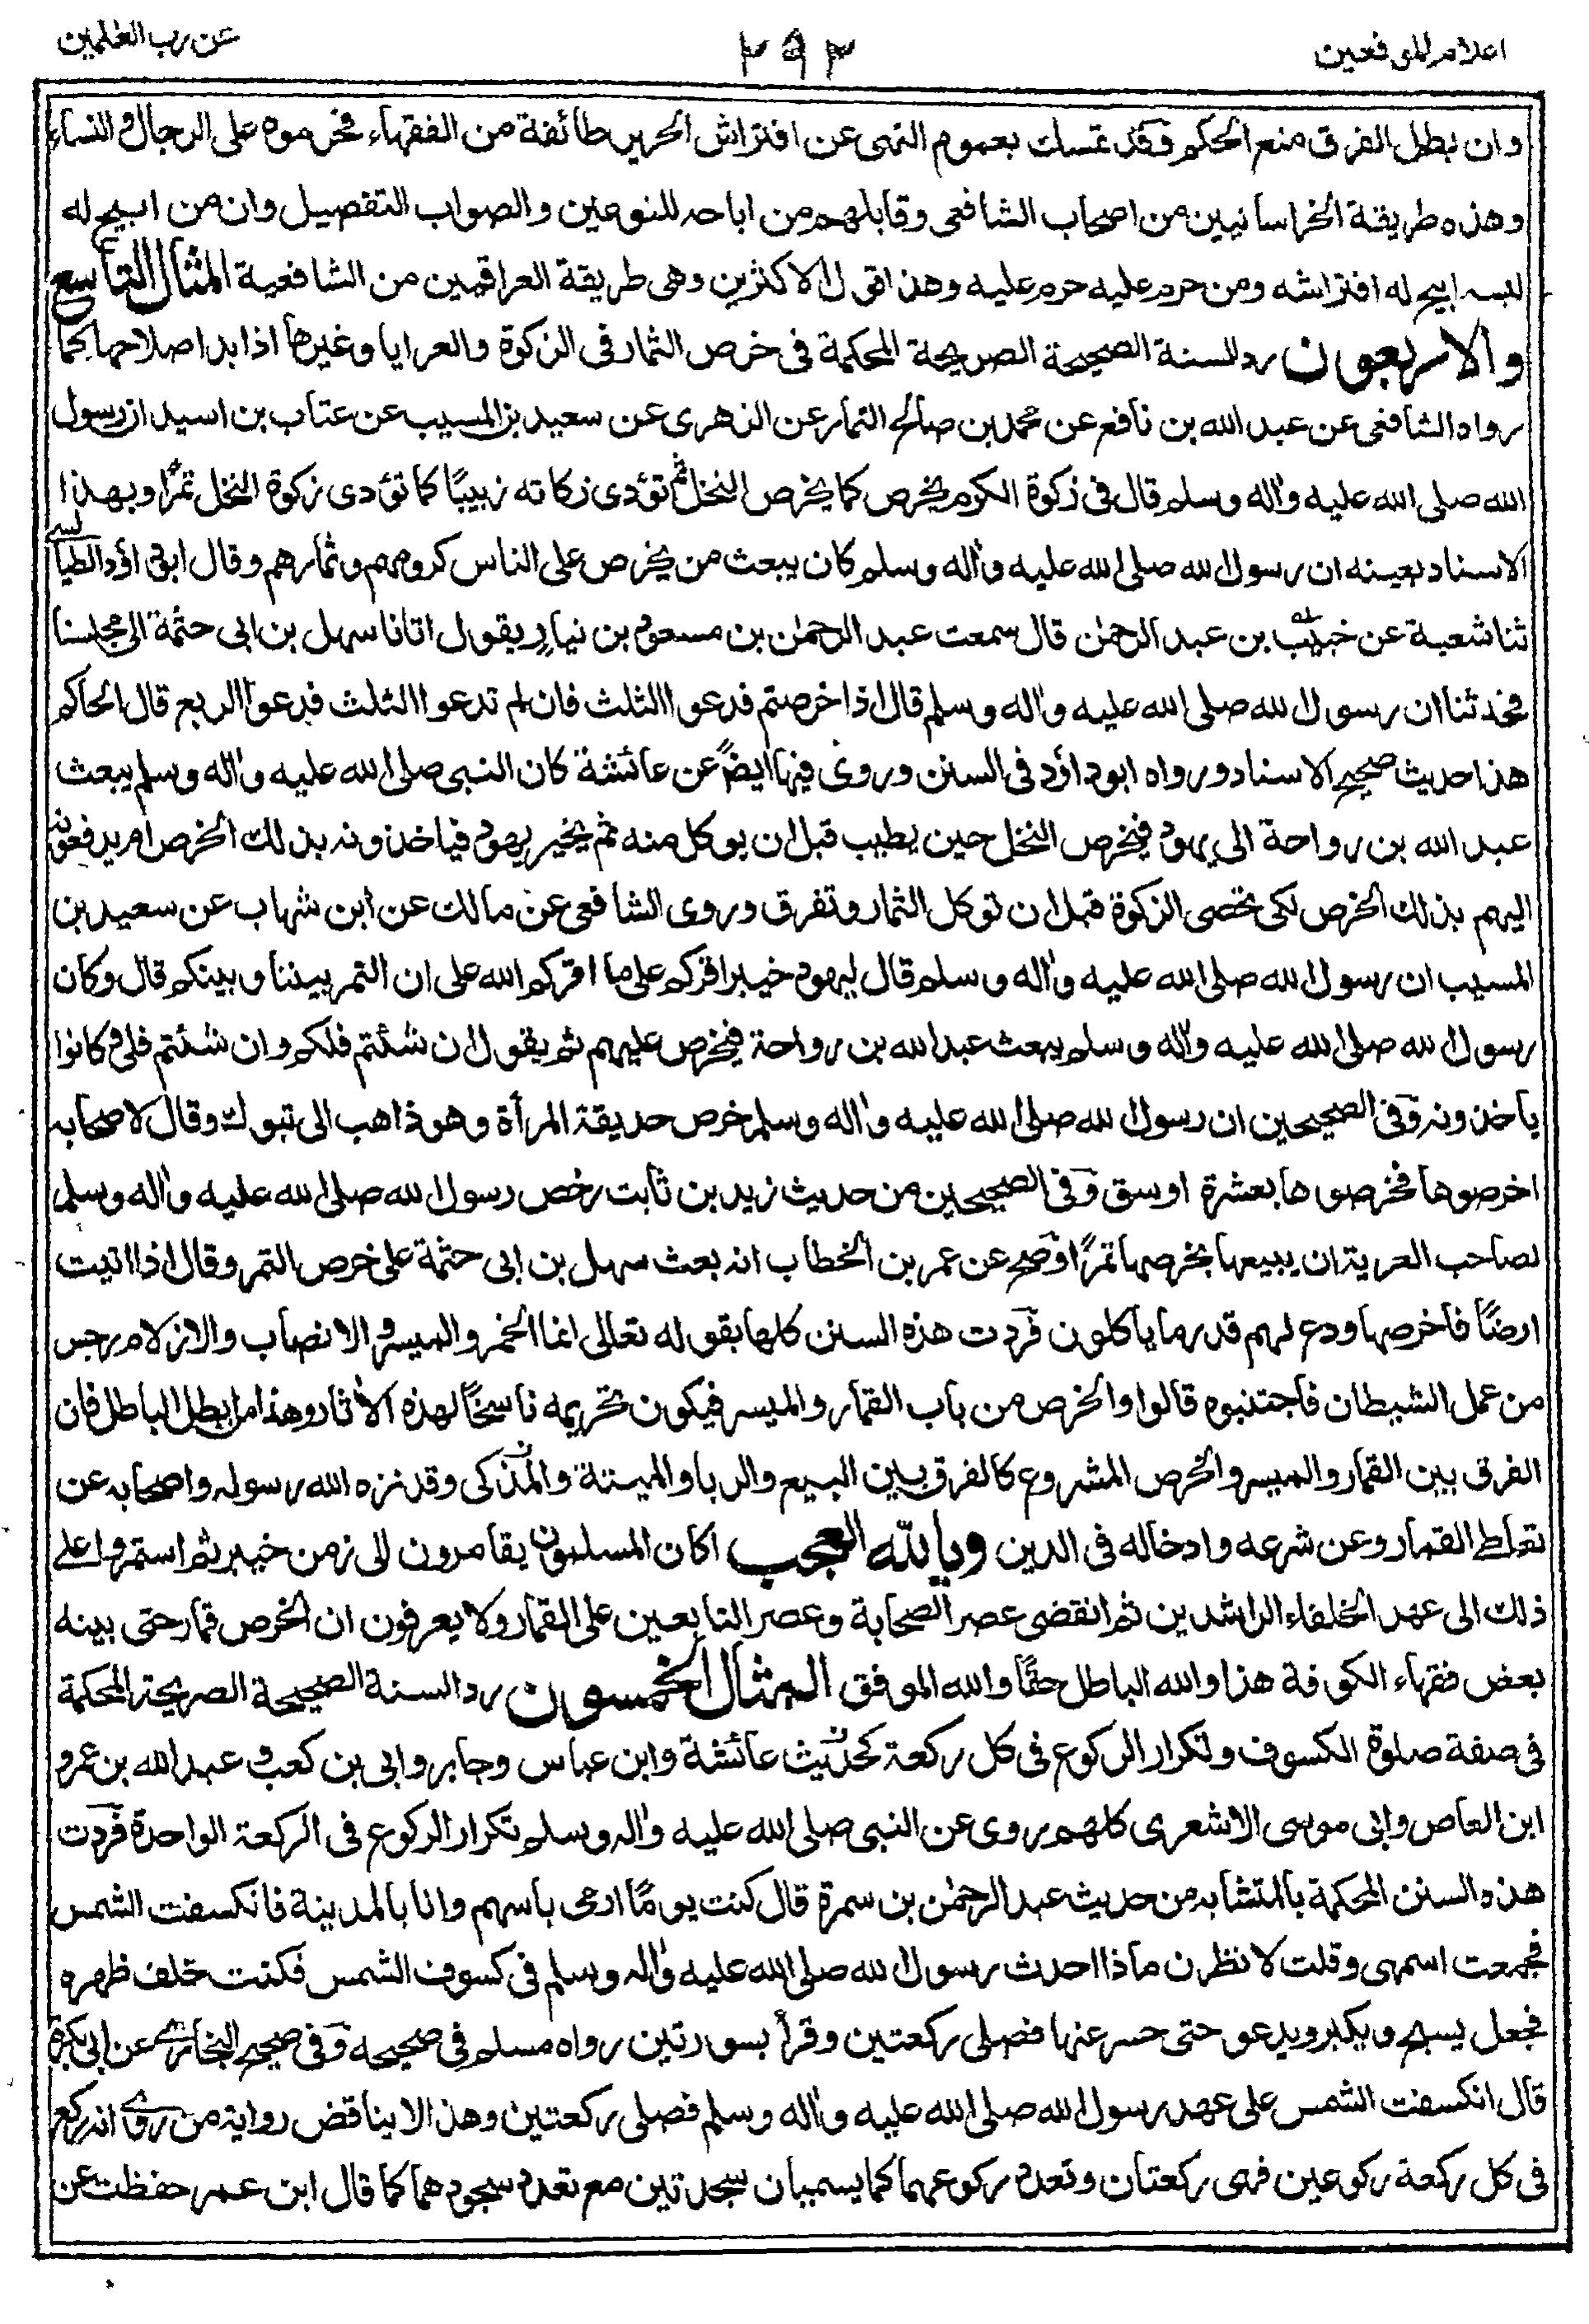 اعلام الموقعين
٢٩٣
عن رب العلمين
وان بطل الفرق منع الحكم وقد تمسك بعموم النهى عن افتراش الحرير طائفة من الفقهاء فحرموه على الرجال والنساء
وهذه طريقة الخراسانيين من اصحاب الشافعى وقابلهم من اباحه للنوعين والصواب التفصيل وان من ابيح له
لبسه ابيح له افتراشه ومن حرم عليه حرم عليه وهذا قول الاكثرين وهى طريقة العراقيين من الشافعية المثال التاسع
والاربعون رد السنة الصحيحة الصريحة المحكمة فى خرص الثمار فى الزكوة والعرايا وغيرها اذا بدا صلاحها كما
رواه الشافعى عن عبد الله بن نافع عن محمد بن صالح التمار عن الزهرى عن سعيد بن المسيب عن عتاب بن اسيد ان رسول
الله صلى الله عليه واله وسلم قال فى زكوة الكرم يخرص كما يخرص النخل ثم تؤدى زكاته زبيبًا كما تؤدى زكوة النخل تمرًا وبهذا
الاسناد بعينه ان رسول الله صلى الله عليه واله وسلم كان يبعث من يخرص على الناس كرومهم وثمارهم وقال ابو داؤد الطيالسى
ثنا شعبة عن خبيب بن عبد الرحمٰن قال سمعت عبد الرحمٰن بن مسعود بن نيار يقول اتانا سهل بن ابى حثمة الى مجلسنا
فحدثنا ان رسول الله صلى الله عليه واله وسلم قال اذا خرصتم فدعوا الثلث فان لم تدعوا الثلث فدعوا الربع قال الحاكم
هذا حديث صحيح الاسناد ورواه ابو داؤد فى السنن وروى فيها ايضًا عن عائشة كان النبى صلى الله عليه واله وسلم يبعث
عبد الله بن رواحة الى يهود فيخرص النخل حين يطيب قبل ان يوكل منه ثم يخير يهود فياخذونه بذلك الخرص ام يدفعونه
اليهم بذلك الخرص لكى تحصى الزكوة قبل ان توكل الثمار وتفرق وروى الشافعى عن مالك عن ابن شهاب عن سعيد بن
المسيب ان رسول الله صلى الله عليه واله وسلم قال ليهود خيبر اقركم على ما اقركم الله على ان التمر بيننا وبينكم قال وكان
رسول الله صلى الله عليه واله وسلم يبعث عبد الله بن رواحة فيخرص عليهم ثم يقول ان شئتم فلكم وان شئتم فلى وكانوا
ياخذونه وفى الصحيحين ان رسول الله صلى الله عليه واله وسلم خرص حديقة المرأة وهو ذاهب الى تبوك وقال لاصحابه
اخرصوها فخرصوها بعشرة اوسق وفى الصحيحين من حديث زيد بن ثابت رخص رسول الله صلى الله عليه واله وسلم
لصاحب العرية ان يبيعها بخرصها تمرًا وصح عن عمر بن الخطاب انه بعث سهل بن ابى حثمة على خرص التمر وقال اذا اتيت
ارضًا فاخرصها ودع لهم قدر ما ياكلون فردت هذه السنن كلها بقوله تعالى انما الخمر والميسر والانصاب والازلام رجس
من عمل الشيطان فاجتنبوه قالوا والخرص من باب القمار والميسر فيكون تحريمه ناسخًا لهذه الآثار وهذا من ابطل الباطل فان
الفرق بين القمار والميسر والخرص المشروع كالفرق بين البيع والربا والميتة والمذكى وقد نزه الله رسوله واصحابه عن
تعاطى القمار وعن شرعه وادخاله فى الدين ويالله العجب اكان المسلمون يقامرون الى زمن خيبر ثم استمروا على
ذلك الى عهد الخلفاء الراشدين ثم انقضى عصر الصحابة وعصر التابعين على القمار ولا يعرفون ان الخرص قمار حتى بينه
بعض فقهاء الكوفة هذا والله الباطل حقًا والله الموفق المثال الخمسون رد السنة الصحيحة الصريحة المحكمة
فى صفة صلوة الكسوف وتكرار الركوع فى كل ركعة كحديث عائشة وابن عباس وجابر وابى بن كعب وعبد الله بن عمرو
ابن العاص وابى موسى الاشعرى كلهم روى عن النبى صلى الله عليه واله وسلم تكرار الركوع فى الركعة الواحدة فردت
هذه السنن المحكمة بالمتشابه من حديث عبد الرحمٰن بن سمرة قال كنت يومًا ارمى باسهم وانا بالمدينة فانكسفت الشمس
فجمعت اسهمى وقلت لانظرن ماذا احدث رسول الله صلى الله عليه واله وسلم فى كسوف الشمس فكنت خلف ظهره
فجعل يسبح ويكبر ويدعو حتى حسر عنها فصلى ركعتين وقرأ بسورتين رواه مسلم فى صحيحه وفى صحيح البخارى عن ابى بكرة
قال انكسفت الشمس على عهد رسول الله صلى الله عليه واله وسلم فصلى ركعتين وهذا لا يناقض رواية من روى انه ركع
فى كل ركعة ركوعين فهى ركعتان وتعدد ركوعهما كما يسميان سجدتين مع تعدد سجودهما كما قال ابن عمر حفظت عن